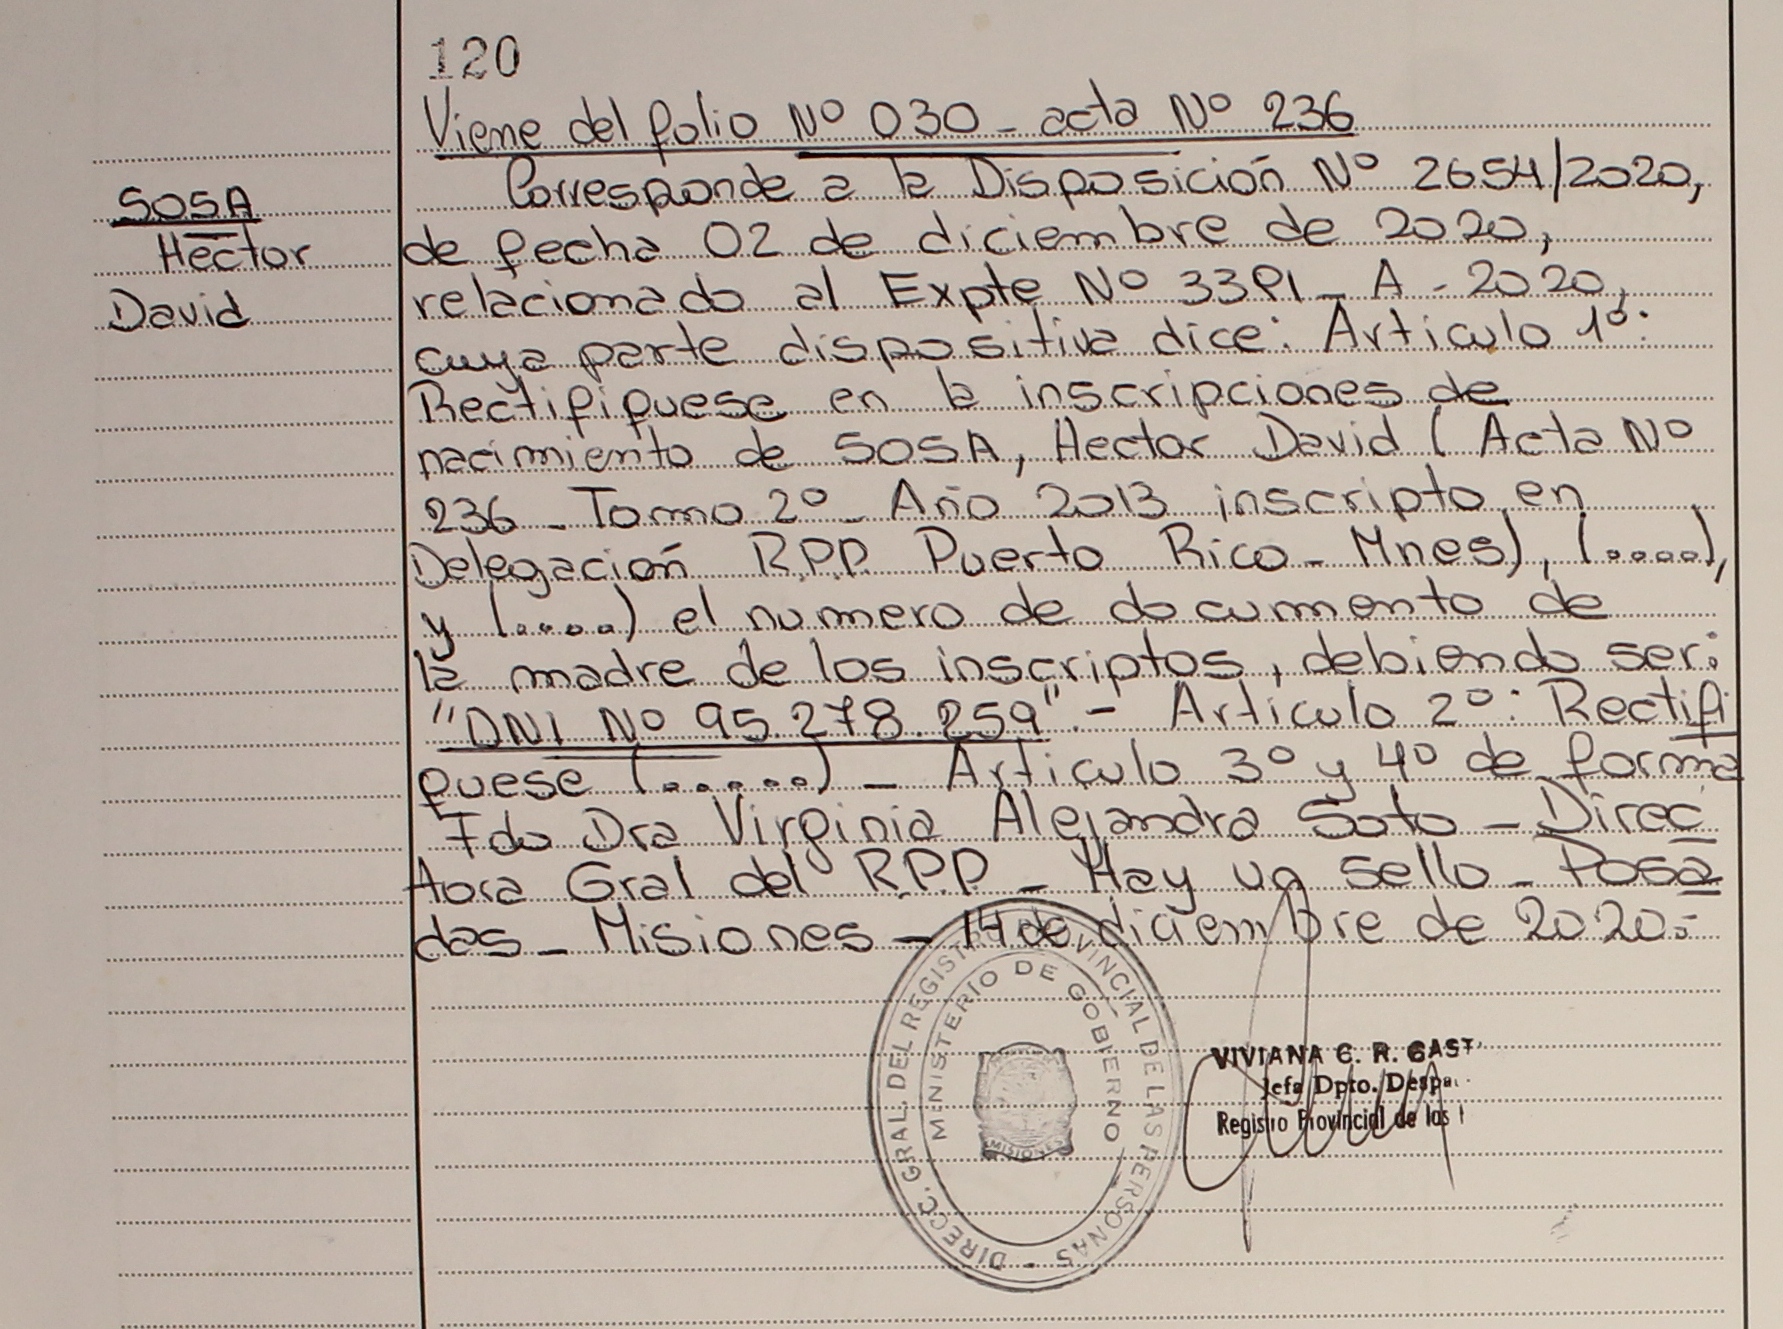 120
Viene del folio Nº 030 - acta Nº 236
SOSA
Hector
David
Corresponde a la Disposición Nº 2654/2020,
de fecha 02 de diciembre de 2020,
relacionado al Expte Nº 3391 - A - 2020,
cuya parte dispositiva dice: Articulo 1º:
Rectifiquese en la inscripciones de
nacimiento de SOSA, Hector David (Acta Nº
236 - Tomo 2º - Año 2013 inscripto en
Delegación R.P.P. Puerto Rico - Mnes), (.....),
y (.....) el numero de documento de
la madre de los inscriptos, debiendo ser:
"DNI Nº 95.278.259".- Articulo 2º: Rectifi
quese (.....) - Articulo 3º y 4º de forma
Fdo Dra Virginia Alejandra Soto - Direc
tora Gral del R.P.P - Hay un sello - Posa
das - Misiones - 14 de diciembre de 2020.-
DIRECC. GRAL. DEL REGISTRO PROVINCIAL DE LAS PERSONAS -
MINISTERIO DE GOBIERNO
MISIONES
VIVIANA C. R. GAST
Jefa Dpto. Despa
Registro Provincial de las